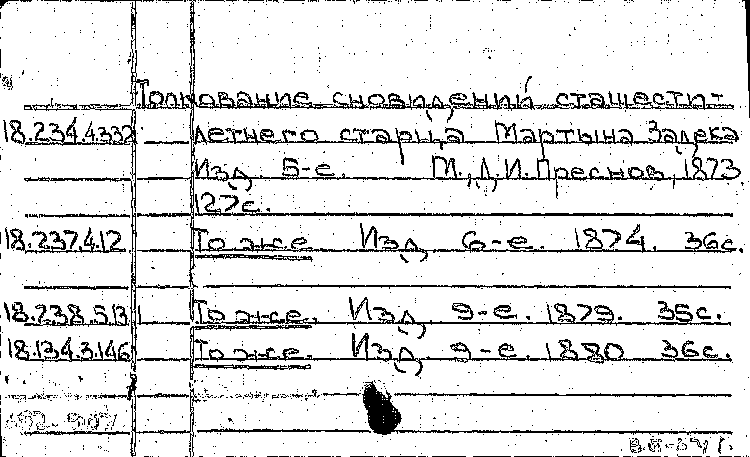 Толкование сновидений сташести-
18.234.4.332 летнего старца Мартына Задека
Изд. 5-е. М., Д.И. Преснов, 1873.
127с.
18.237.4.12 То же Изд. 6-е. 1874. 36с.
18.238.5.131 То же. Изд. 9-е. 1879. 35с.
18.134.3.146 То же. Изд. 9-е. 1880 36с.